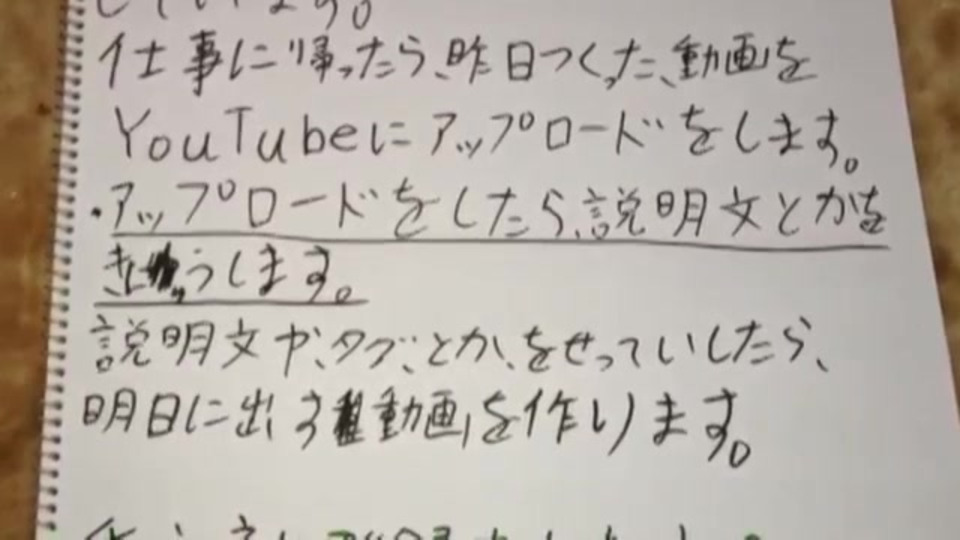 しています。
仕事に帰ったら、昨日つくった、動画を
YouTubeにアップロードをします。
・アップロードをしたら、説明文とかを
きにゅうします。
説明文や、タグ、とか、をせっていしたら、
明日に出す動画を作ります。